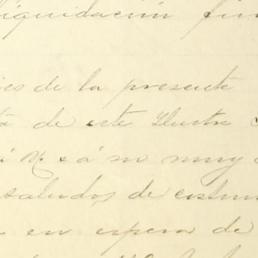 liquidación fin
es de la presente
tá de este Ilustre
á V. é á su muy
saludos de costum
en espera de